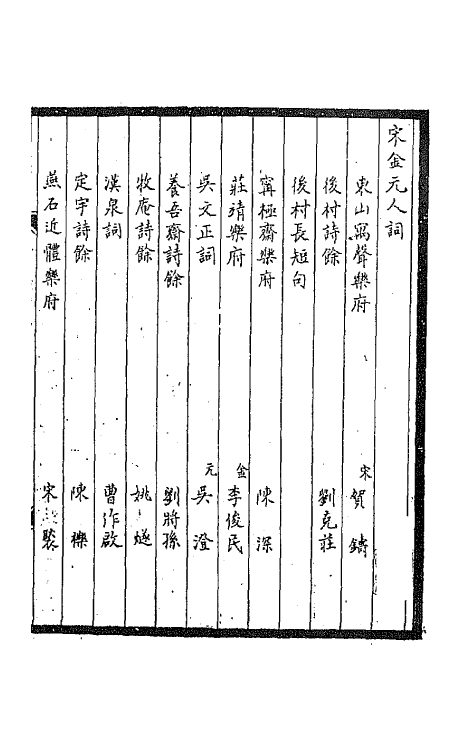 宋金元人詞
東山寓聲樂府 宋 賀鑄
後村詩餘 劉克莊
後村長短句
甯極齋樂府 陳深
莊靖樂府 金 李俊民
吳文正詞 元 吳澄
養吾齋詩餘 劉將孫
牧庵詩餘 姚燧
漢泉詞 曹作啟
定宇詩餘 陳櫟
燕石近體樂府 宋褧